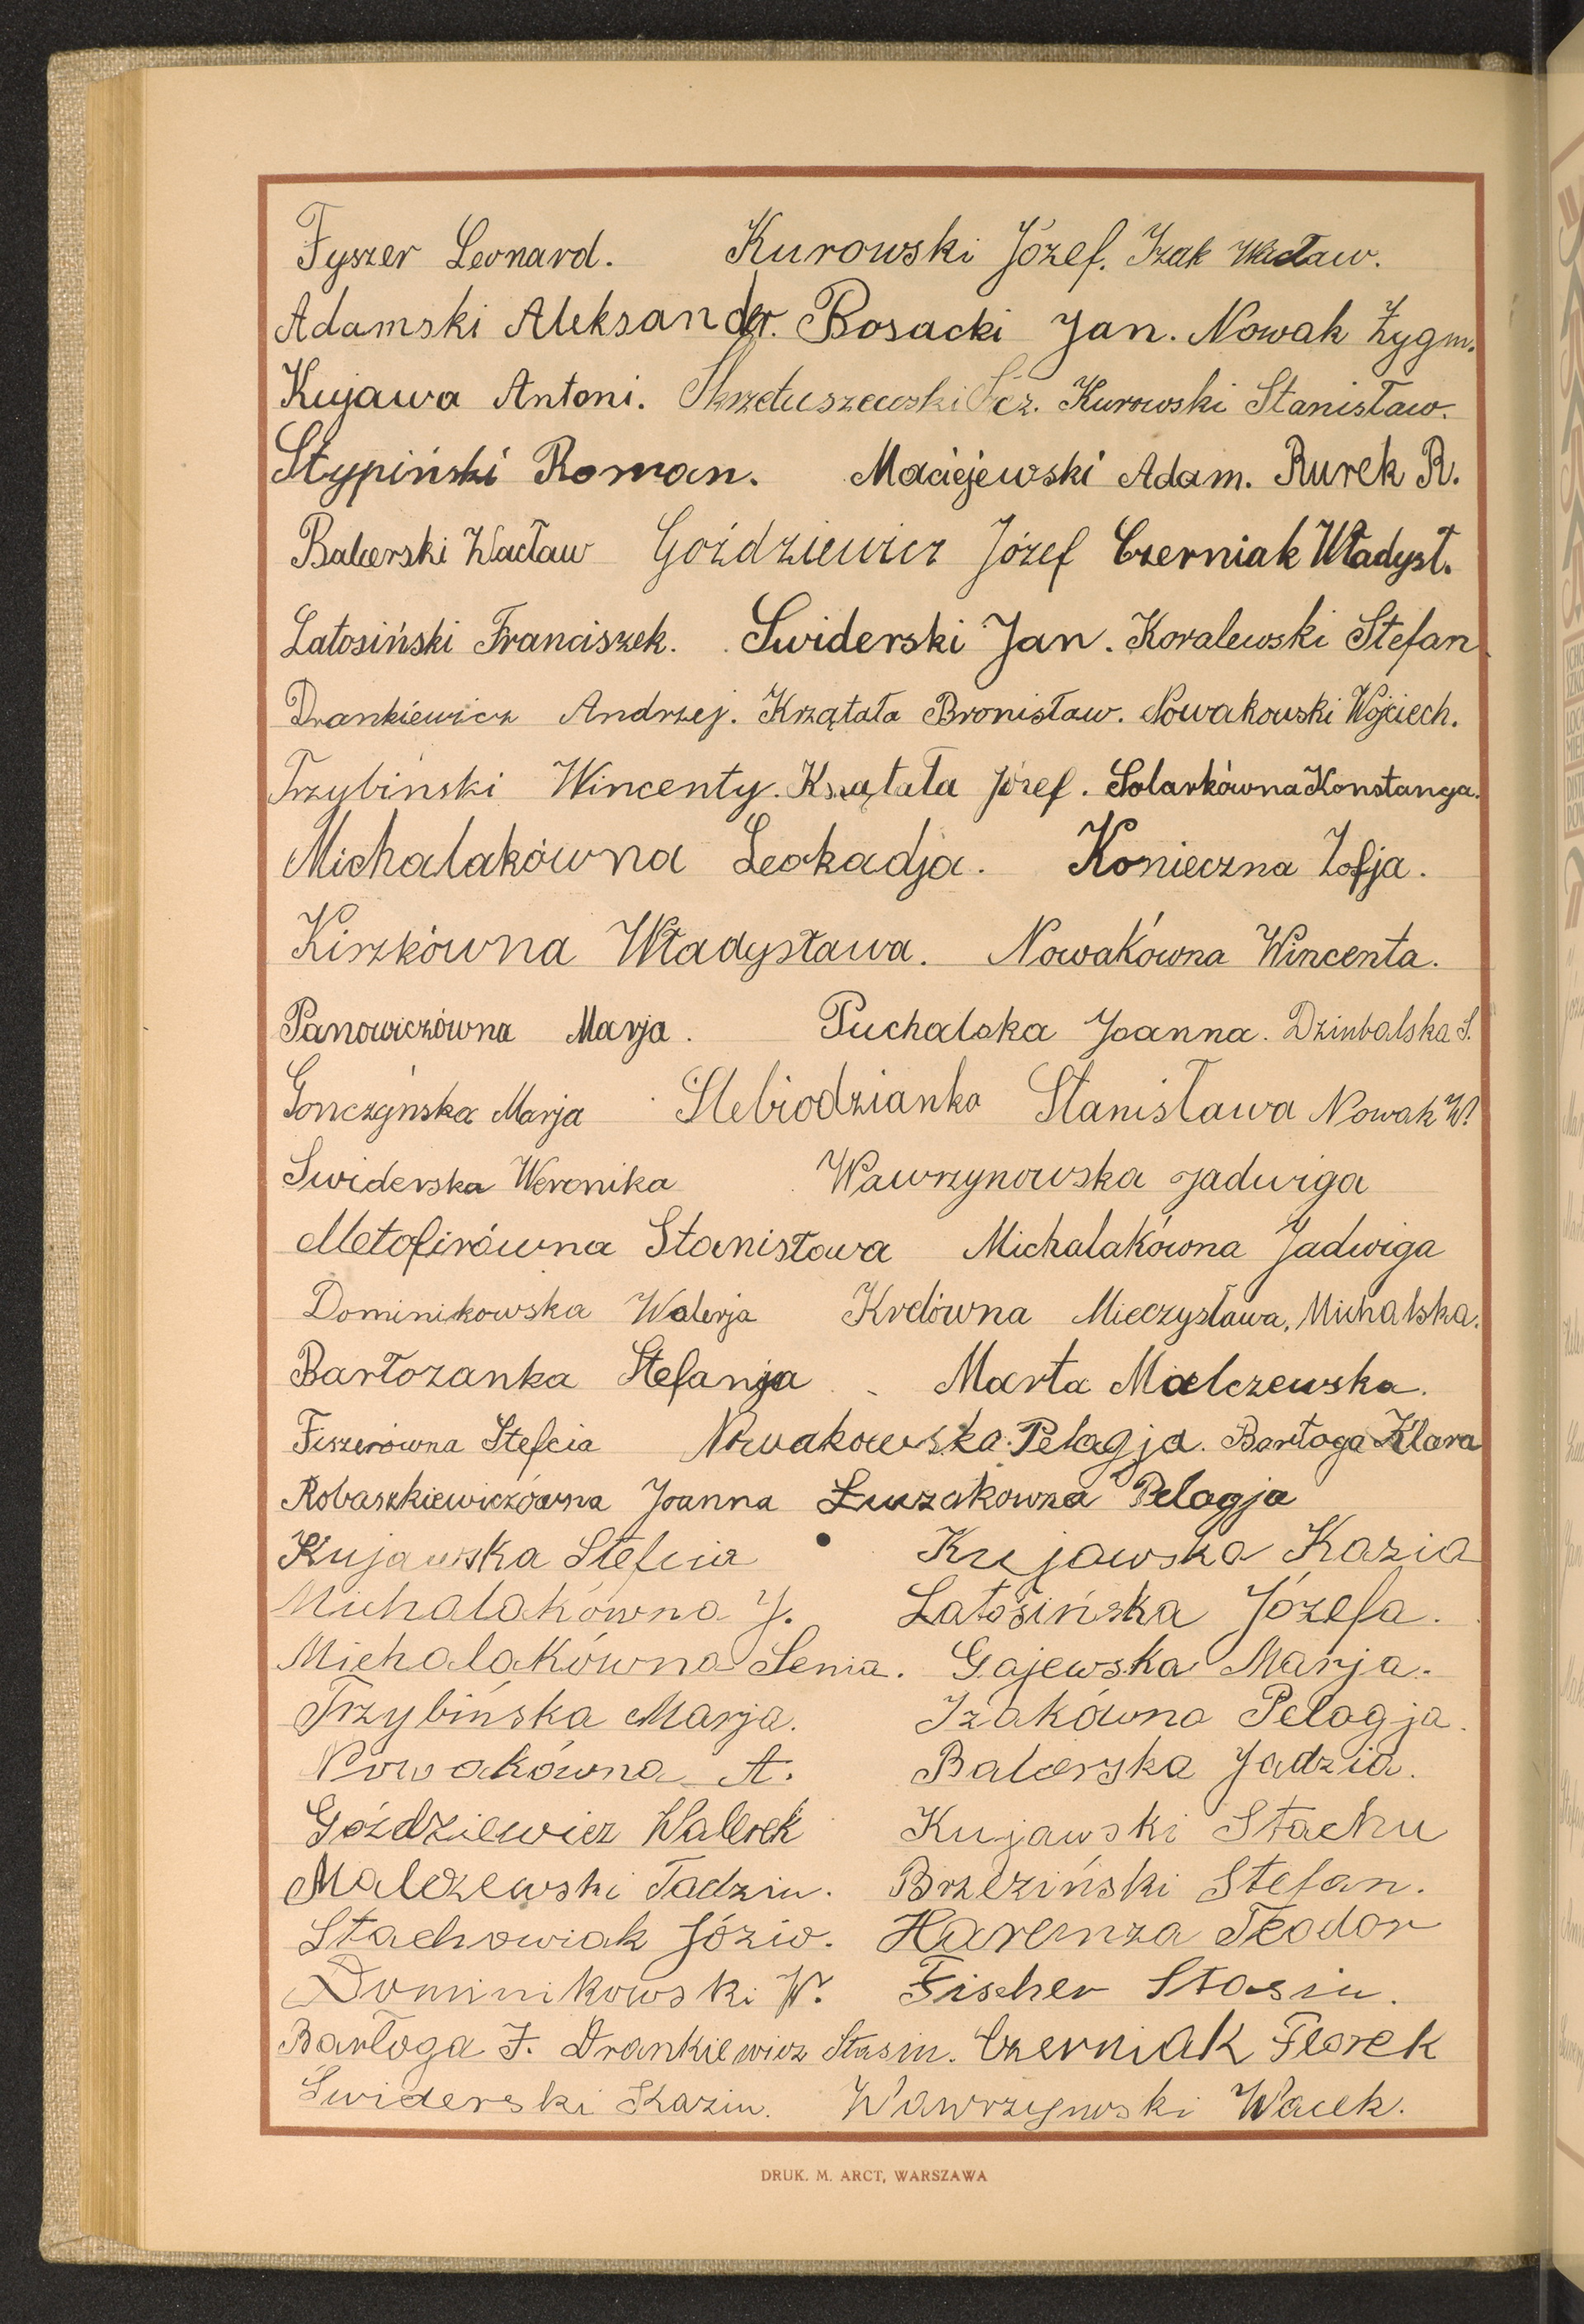 Fyszer Leonard. Kurowski Józef. Izak Wacław.
Adamski Aleksander. Bosacki Jan. Nowak Zygm.
Kujawa Antoni. Skrzetuszewski Kurowski Stanisław.
Stypiński Roman. Maciejewski Adam. Rurek R.
Balcerski Wacław Goździewicz Józef Czerniak Władysł.
Latosiński Franciszek. Swiderski Jan. Koralewski Stefan
Drankiewicz Andrzej. Krzątała Bronisław. Nowakowski Wojciech.
Trzybinski Wincenty. Krzątała Józef. Solarkówna Konstancja.
Michalakówna Leokadja. Konieczna Zofja.
Kiszkówna Władysława. Nowakówna Wincenta.
Panowiczówna Marja. Puchalska Joanna. Dzimbalska S.
Gonczyńska Marja Stebiodzianka Stanisława Nowak W.
Swiderska Weronika Wawrzynowska Jadwiga
Metofirówna Stanisława Michalakówna Jadwiga
Dominikowska Walerja Krelówna Mieczysława, Michalska.
Bartozanka Stefanja Marta Malczewska.
Fiszerówna Stefcia Nowakowska Pelagja. Bartoga Klara
Robaszkiewiczówna Joanna Łuczakowna Pelagja
Kujawska Stefcia Kujawska Kazia
Michalakówna J. Latosińska Józefa.
Michalakówna Lenia. Gajewska Marja.
Trzybińska Marja. Izakówna Pelagja.
Nowakówna A. Balcerska Jadzia.
Goździewicz Walerek Kujawski Stachu
Malczewski Tadziu. Brzeziński Stefan.
Stachowiak Józio. Haremza Teodor
Dominikowski W. Fischer Stasiu.
Bartoga F. Drankiewicz Stasiu. Czerniak Florek
Swiderski Kaziu. Wawrzynowski Wacek.
DRUK. M. ARCT, WARSZAWA